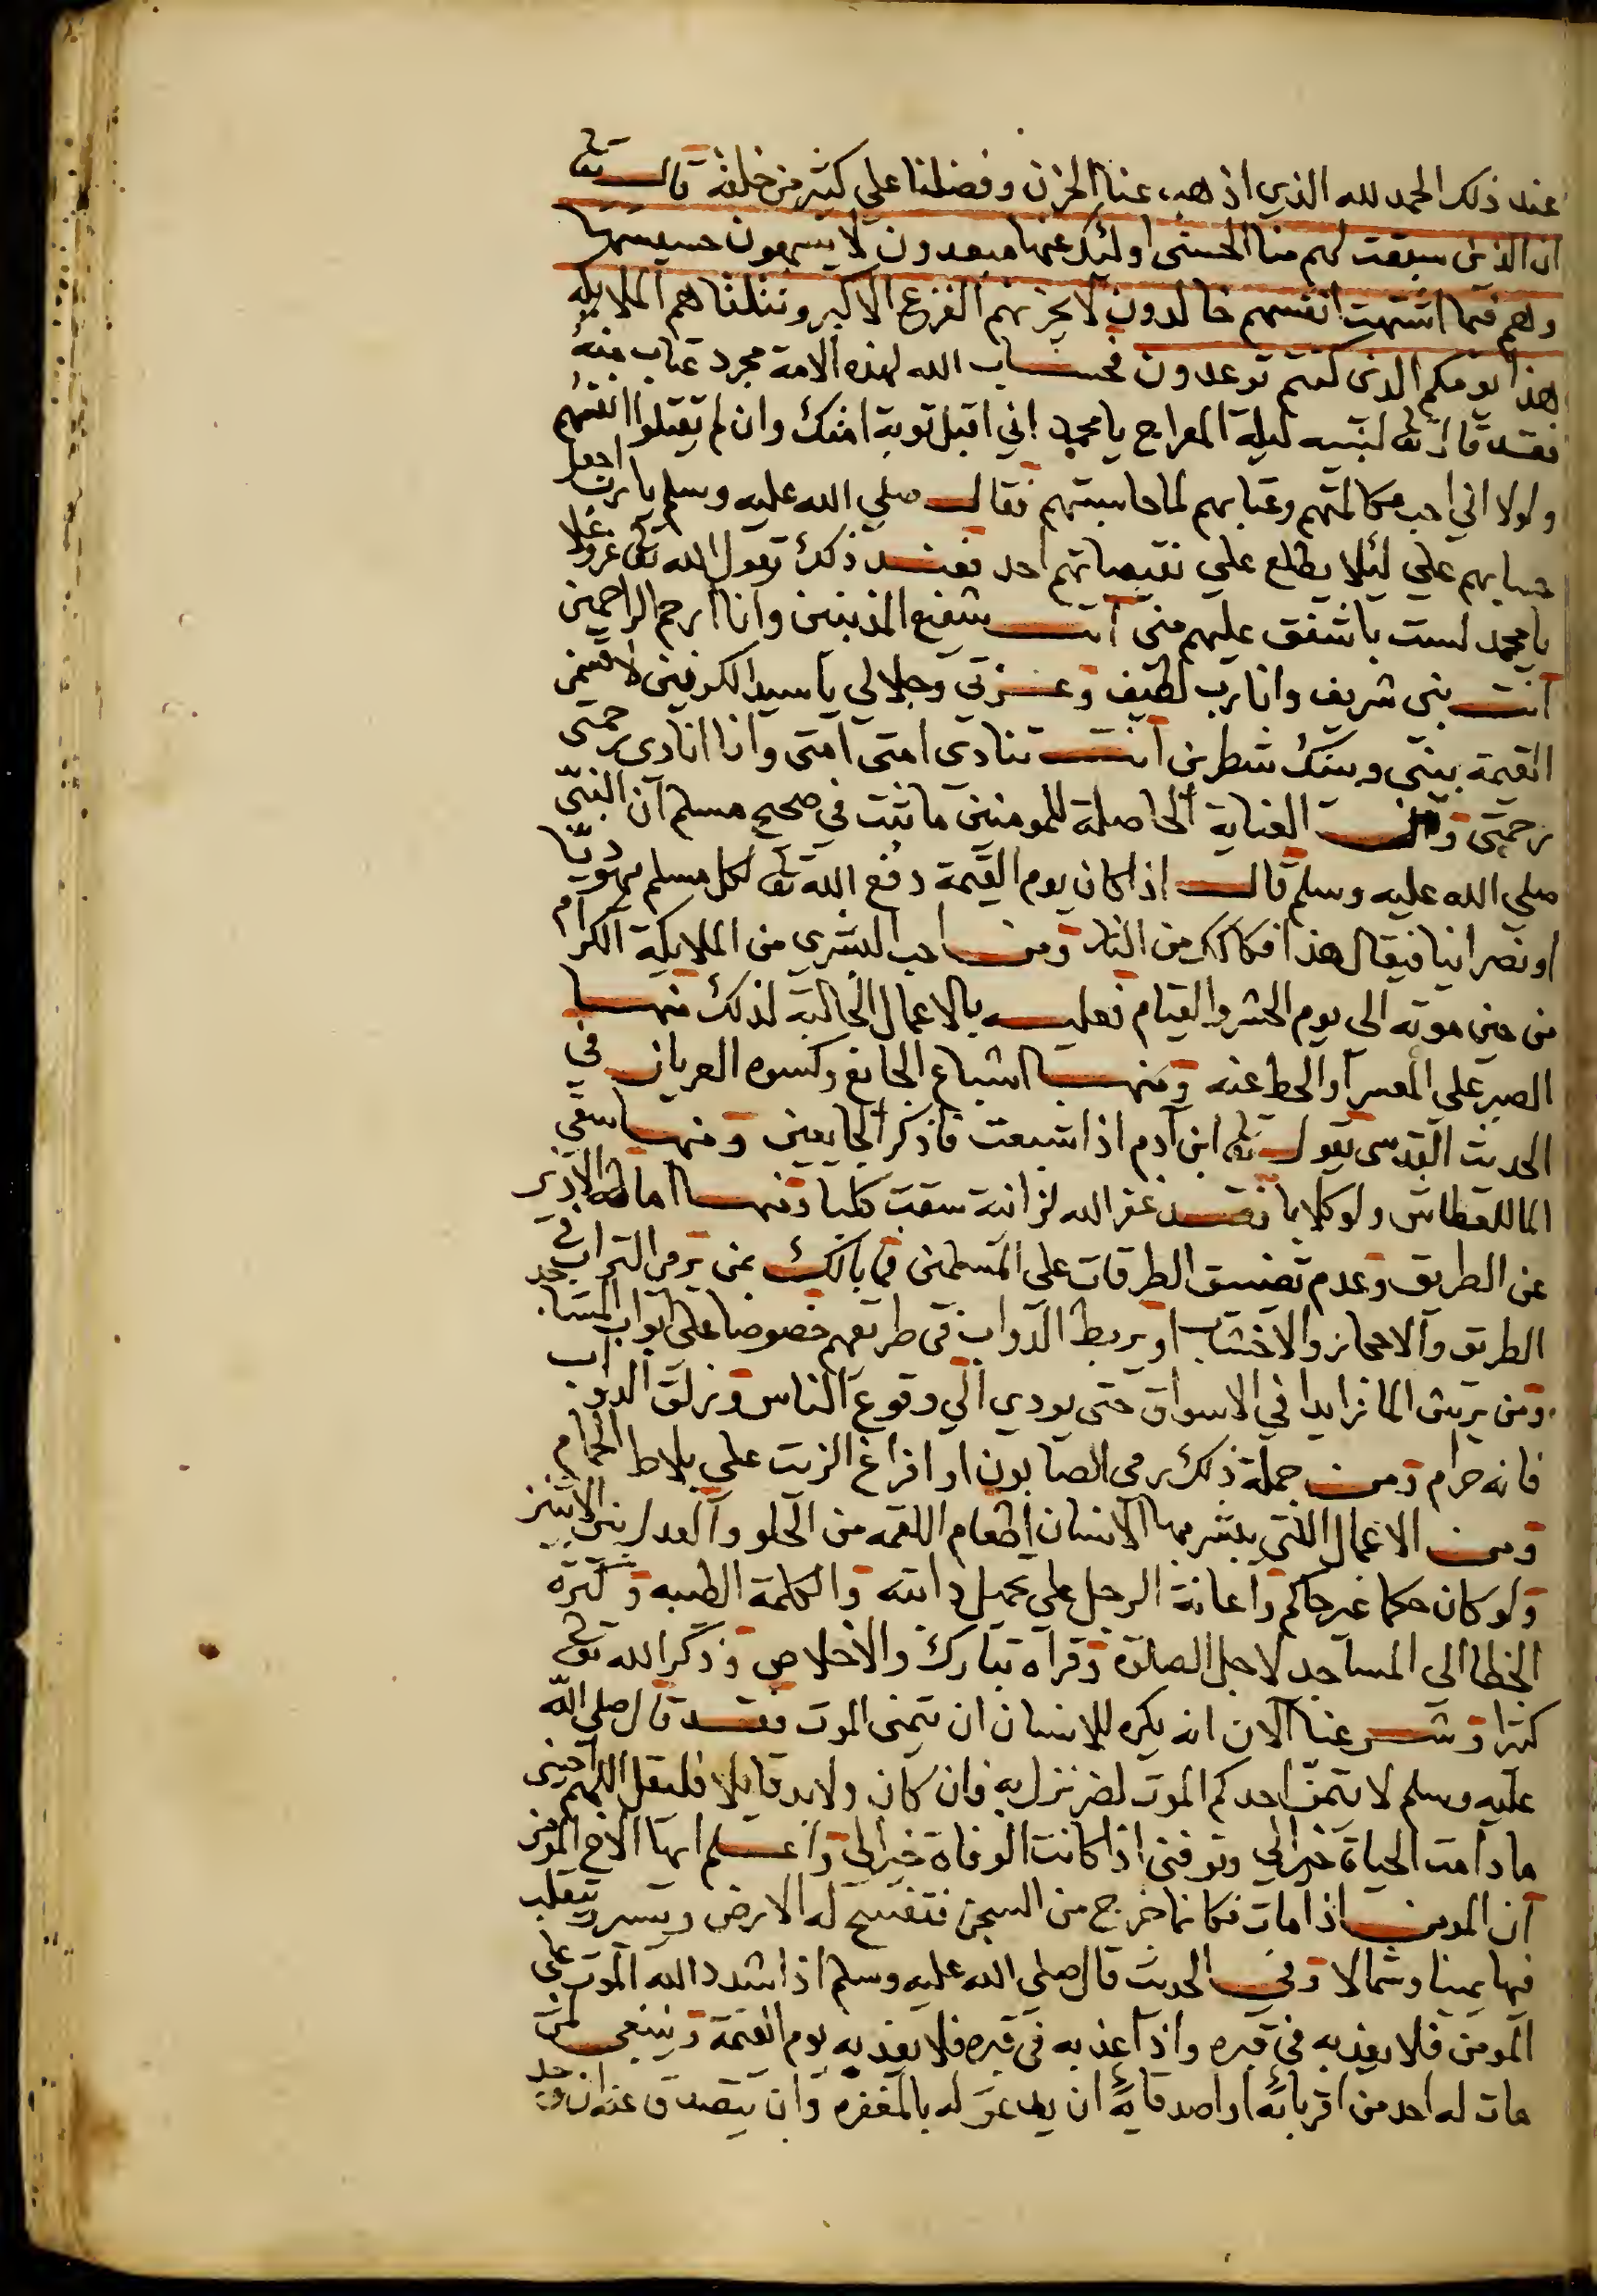 عند ذلك الحمد لله الذي اذهب عنا الحزن وفضلنا علي كثير من خلقه قال تعالى
ان الذين سبقت لهم منا الحسنى اولئك عنها مبعدون لا يسمعون حسيسها
وهم فيما اشتهت انفسهم خالدون لا يحزنهم الفزع الاكبر وتتلقاهم الملايكة
هذا يومكم الذى كنتم توعدون فحساب الله لهذه الامة مجرد عتاب منه
فقد قال تعالى لنبيه ليلة المعراج يا محمد اني اقبل توبة امتك وان لم يقتلوا انفسهم
ولولا اني احب مكالمتهم وعتابهم لما حاسبتهم فقال صلي الله عليه وسلم يا رب اجعل
حسابهم علي لئلا يطلع علي نقيصاتهم احد فعند ذلك يقول الله تعالى عز وعلا
يا محمد لست باشفق عليهم منى انت شفيع المذنبين وانا ارحم الراحمين
انت نبي شريف وانا رب لطيف وعزتي وجلالي يا سيد الكونين لاقسمن
القيمة بيني وبينك شطرين انت تنادى امتى امتى وانا انادى رحمتى
رحمتى العناية الحاصلة للمومنين ما ثبت في صحيح مسلم ان النبي
صلي الله عليه وسلم قال اذا كان يوم القيمة دفع الله تعالى لكل مسلم يهوديا
او نصرانيا فيقال هذا فكاكك من النار ومن احب البشرى من الملايكة الكرام
من حين موته الى يوم الحشر والقيام فعليه بالاعمال الجالبة لذلك منها
الصبر على المعسر او الحط عنه ومنها اشباع الجايع وكسوه العريان في
الحديث القدسى يقول تعالى ابن ادم اذا شبعت فاذكر الجايعين ومنها سقي
الما للعطاش ولو كلابا فقد غفر الله لزانية سقت كلبا ومنها اماطة الاذى
عن الطريق وعدم تضييق الطرقات على المسلمين فما بالك بمن يرمى التراب في
الطريق والاحجار والاخشاب او يربط الدواب في طريقهم خصوصا على ابواب المساجد
ومن يرش الما زايدا في الاسواق حتى يودي الي وقوع الناس وزلق الدواب
فانه حرام ومن جملة ذلك رمى الصابون او افراغ الزيت علي بلاط الحمام
ومن الاعمال التي يبشر بها الانسان اطعام اللقمه من الحلو والعدل بين الاثنين
ولو كان حكما غير حاكم واعانة الرجل علي تحميل دابته والكلمة الطيبه وكثرة
الخطا الى المساجد لاجل الصلوة وقراة تبارك والاخلاص وذكر الله تعالى
كثيرا وشرعنا الان انه يكره للانسان ان يتمنى الموت فقد قال صلى الله
عليه وسلم لا يتمن احدكم الموت لضر نزل به فان كان ولا بد قايلا فليقل اللهم احينى
ما دامت الحياة خيرا لي وتوفنى اذا كانت الوفاة خيرا لي واعلم ايها الاخ المومن
ان المومن اذا مات فكانما خرج من السجن فتفسح له الارض ويسير ويتقلب
فيها يمينا وشمالا وفي الحديث قال صلى الله عليه وسلم اذا شدد الله الموت علي
المومن فلا يعذبه في قبره واذا عذبه في قبره فلا يعذبه يوم القيمة وينبغى لمن
مات له احد من اقربائه او اصدقائه ان يدعو له بالمغفره وان يتصدق عنه ان وجد